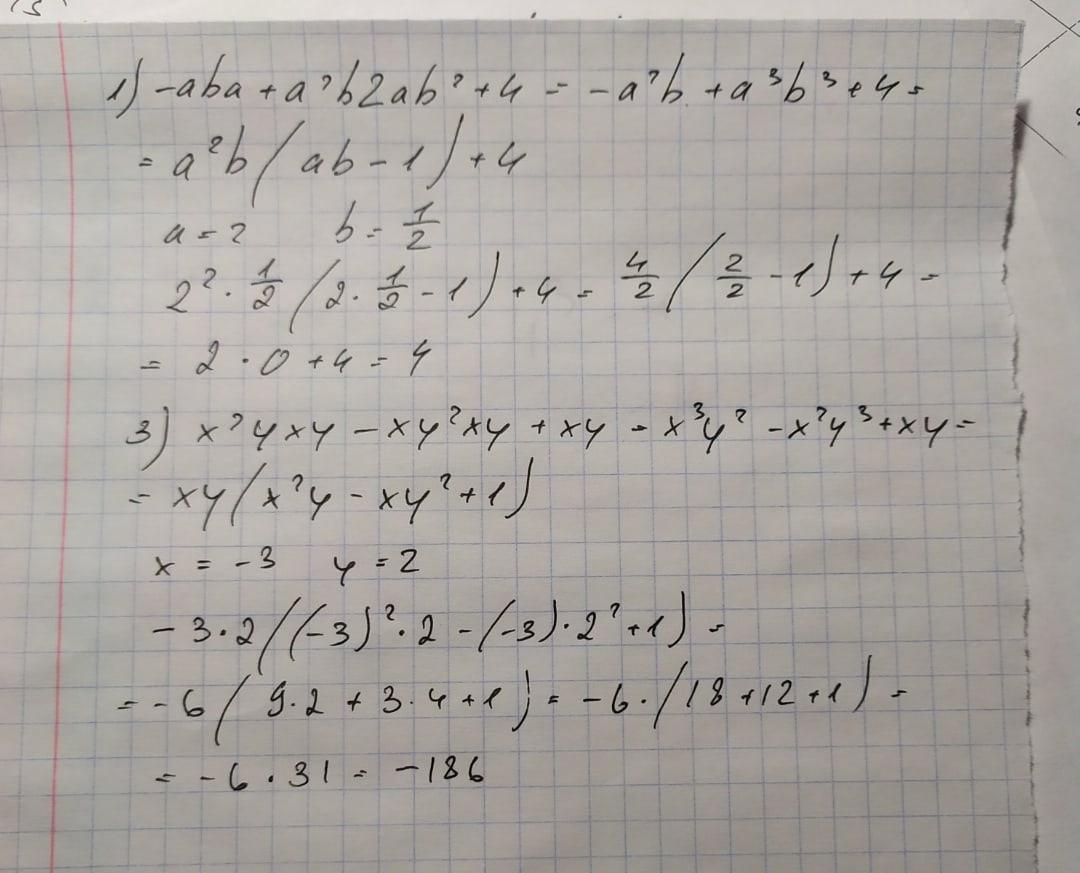 1) -aba + a²b2ab² + 4 = -a²b + a³b³ + 4 =
= a²b(ab - 1) + 4
a = 2 b = 1/2
2² · 1/2 (2 · 1/2 - 1) + 4 = 4/2 (2/2 - 1) + 4 =
= 2 · 0 + 4 = 4
3) x²yxy - xy²xy + xy = x³y² - x²y³ + xy =
= xy(x²y - xy² + 1)
x = -3 y = 2
-3 · 2((-3)² · 2 - (-3) · 2² + 1) =
= -6(9 · 2 + 3 · 4 + 1) = -6 · (18 + 12 + 1) =
= -6 · 31 = -186